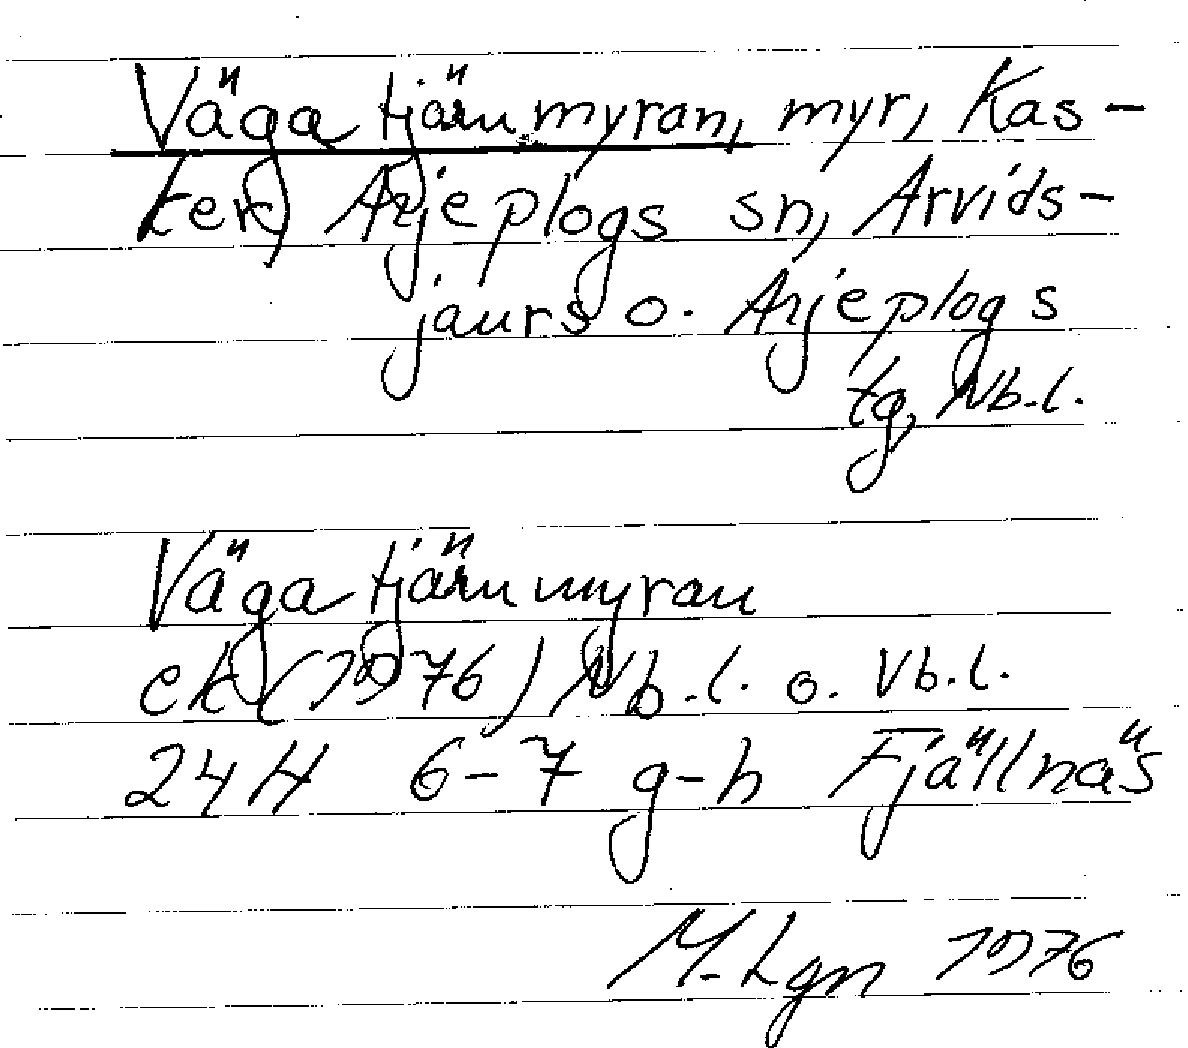 Vägatjärnmyran, myr, Kas-
ker, Arjeplogs sn, Arvids-
jaurs o. Arjeplogs
tg, Nb.l.
Vägatjärnmyran
ek (1976) Nb.l. o. Vb.l.
24H 6-7 g-h Fjällnäs
M. Lgn 1976